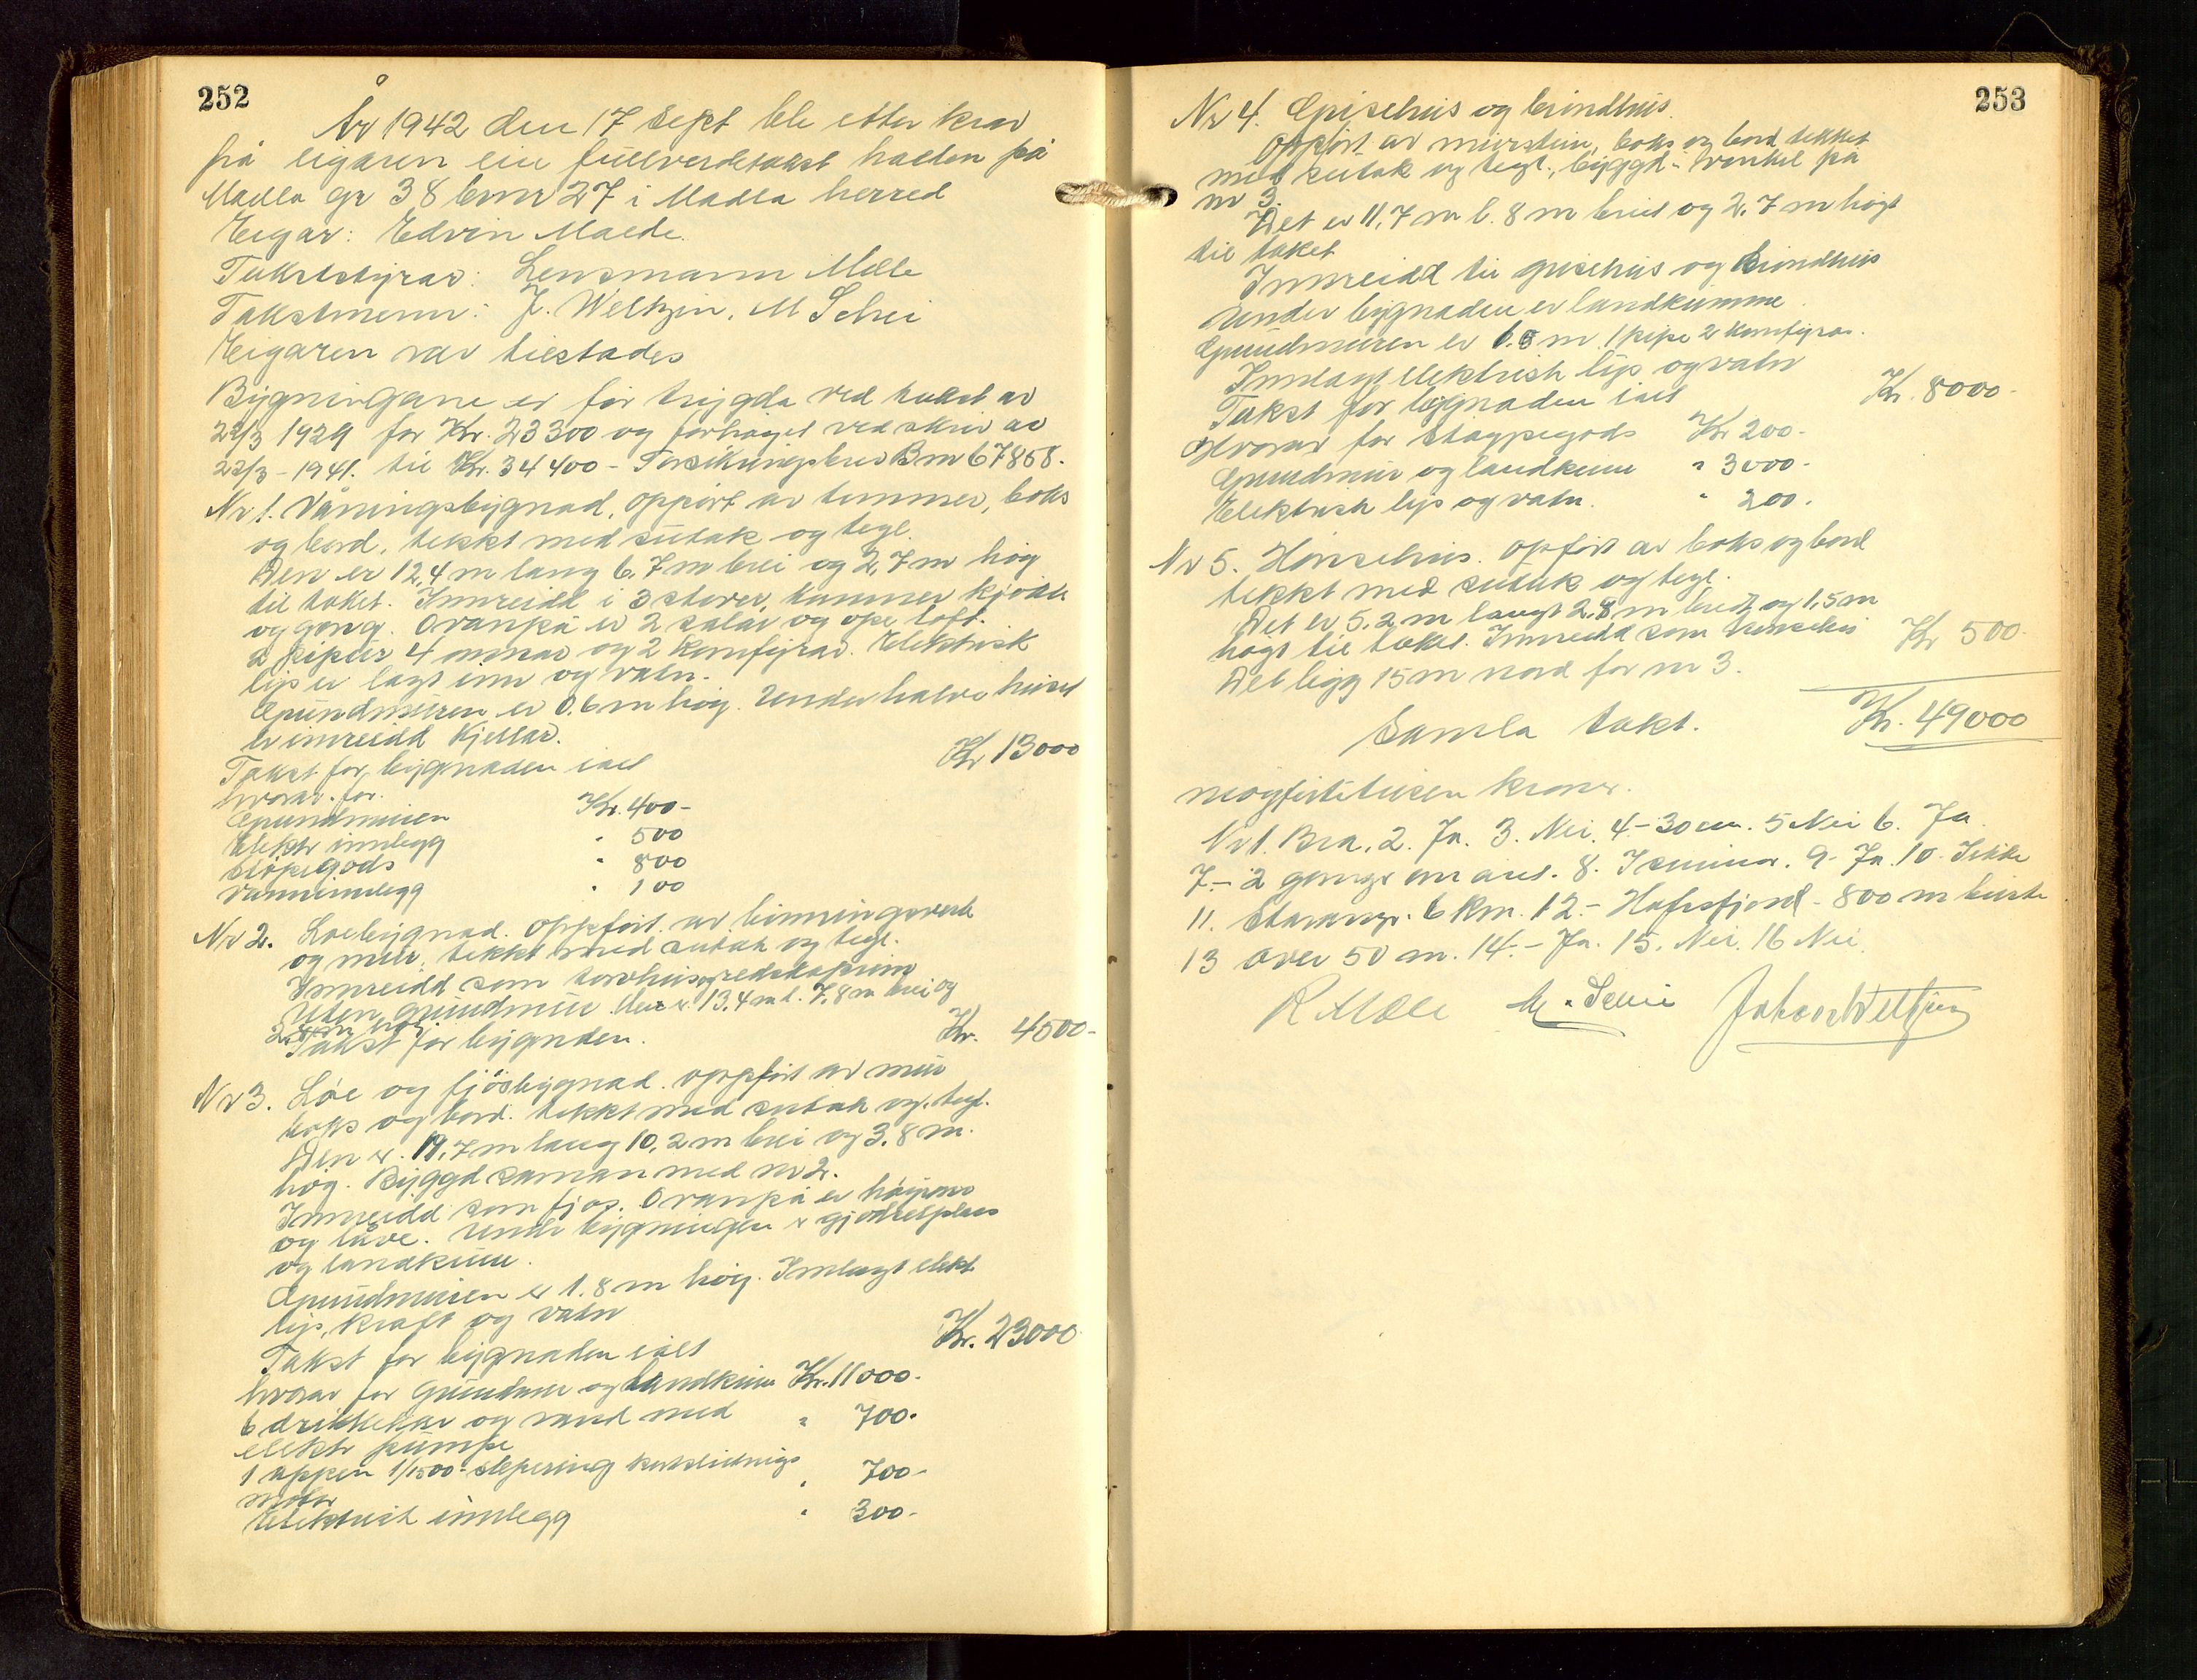 252
År 1942 den 17 sept ble etter krav
frå eigaren ein fullverdetakst halden på
Madla gr 38 bnr 27 i Madla herred
Eigar: Edvin Malde.
Takststyrar: Lensmann Mæle
Takstmenn: J. Welhzin, M Schei
Eigaren var tilstades
Bygningane er før trygda ved takst av
22/3 1929 for Kr. 23300 og forhøgel ved skriv av
22/3-1941. til Kr. 34400 - Forsikringsbrev Bm 67858.
Nr 1. Våningsbygnad, oppørt av tømmer, boks
og bord, tekkt med sutak og tegl.
Den er 12,4 m lang 6,7 m brei og 2,7 m høg
til taket. Innreidd i 3 stover, kammer kjøken
og gang. Ovanpå er 2 salar og ope loft.
2 pipeer 4 omnar og 2 komfyrar. Elektrisk
lys er lagt inn og vatn.
Grundmuren er 0.6 m høg. Under halve huset
er innreidd Kjellar.
Takst for bygnaden ialt Kr 13000
hvorav for.
Grundmuren Kr. 400-
Elektr innlegg " 500
Støpegods " 800
Vanninnlegg " 100
Nr 2. Loebygnad. Oppført av binningsverk
og mur, tekkt med sutak og tegl.
Innreidd som torvhus og redskapsrom
Uten grundmur. Den er 13,4 m l. 7,8 m brei og
høg.
Takst for bygnden. Kr. 4500-
Nr 3. Løe og fjøsbygnad. oppført av mur
boks og bord. tekkt med sutak og tegl.
Den er. 19,7 m lang 10,2 m brei og 3.8 m.
høg. Byggd saman med nr 2.
Innreidd som fjøs. Ovanpå er høyrom
og låve. Under bygningen er gjødselplass
og landkum.
Grundmuren er 1.8 m høg. Innlagt elekt.
lys, kraft og vatn
Takst for bygnaden ialt Kr. 23000
hvorav for Grundmur og landkum Kr. 11000.
6 drikkekar og vand med " 700.
elektr pumpe
1 1/1500 kortslutnings " 700-
motor
Elektrisk innlegg " 300-
253
Nr 4. Grisehus og brindhus.
Oppført av murstein, boks og bord, tekket
med sutak og tegl., byggd i vinkel på
nr 3.
Det er 11,7 m l. 8 m breit og 2,7 m høgt
til taket
Innreidd til grisehus og brindhus
Under bygnaden er landkumme.
Grundmuren er m. 1 pipe 2 komfyrar.
Innlagt elektrisk lys og vatn
Takst for bygnaden ialt Kr. 8000-
Hvorav for støypegods Kr 200-
Grundmur og landkum " 3000-
Elektrisk lys og vatn. " 200.
Nr 5. Hønsehus. Oppført av boks og bord
tekkt med sutak og tegl.
Det er 5.2 m langt 2,8 m bredt og 1,5 m
høgt til taket. Innreidd som hønsehus Kr 500-
Det ligg 15 m nord for nr 3.
Samla takst. Kr. 49000
niogførtitusen kroner.
Nr 1. Bra. 2. Ja. 3. Nei. 4-30 cm. 5 Nei 6. Ja
7.- 2 ganger om året. 8. 9- Ja. 10- Ikkke
11. Stavanger. 6 Km. 12.- Hafrsfjord - 800 m
13 over 50 m. 14.- Ja. 15. Nei. 16 Nei.
R Mæle M. Schei Johan Welhzin